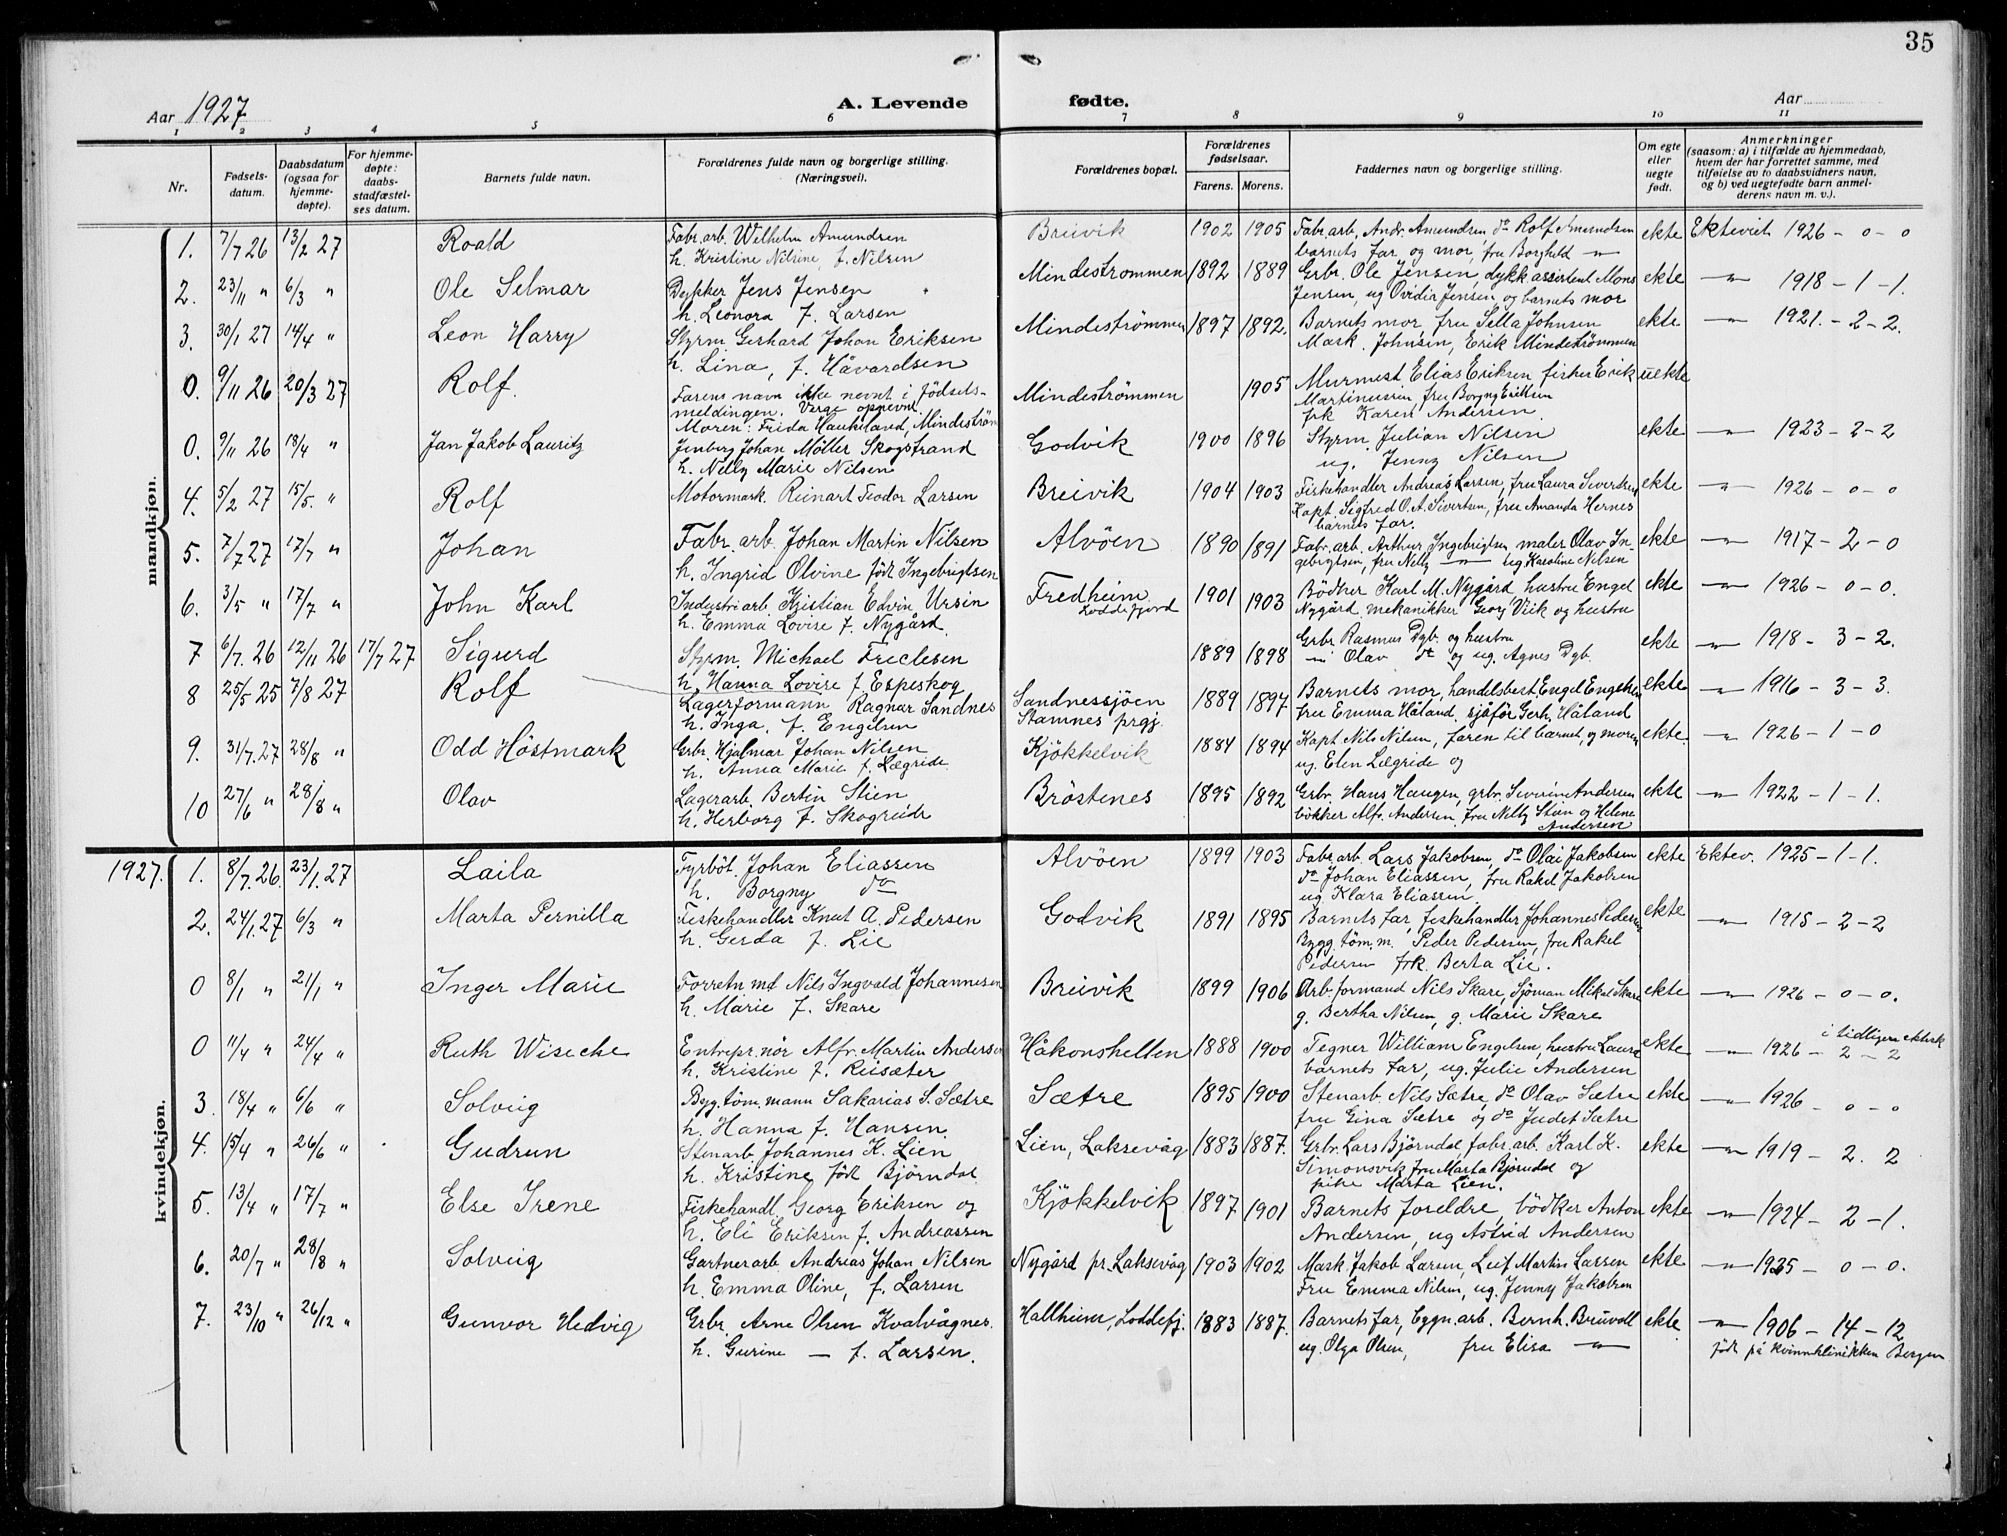 35
Aar 1927
A. Levende fødte.
Aar
1 2 3 4 5 6 7 8 9 10 11
Nr.
Fødsels-
datum.
Daabsdatum
(ogsaa for
hjemme-
døpte).
For hjemme-
døpte:
daabs-
stadfæstel-
ses datum.
Barnets fulde navn.
Forældrenes fulde navn og borgerlige stilling.
(Næringsvei).
Forældrenes bopæl.
Forældrenes
fødselsaar.
Farens. Morens.
Faddernes navn og borgerlige stilling.
Om egte
eller
uegte
født.
Anmerkninger
(saasom: a) i tilfælde av hjemmedaab,
hvem der har forrettet samme, med
tilføielse av to daabsvidners navn,
og b) ved uegtefødte barn anmel-
derens navn m. v.).
mandkjøn.
1. 7/7 26 13/2 27 Roald Fabr. arb. Wilhelm Amundsen Breivik 1902 1905 Fabr. arb. Andr. Amundsen do Rolf Amundsen ekte Ekteviet 1926 - 0 - 0
h. Kristine Nilsine, f. Nilsen barnets far og mor, fru Borghild - " -
2. 23/11 " 6/3 " Ole Selmar Dykker Jens Jensen Mindestrømmen 1892 1889 Grbr. Ole Jensen, dykk. assistent Mons ekte - " - 1918 - 1 - 1.
h. Leonora f. Larsen Jensen, ug Ovidia Jensen og barnets mor
3. 30/1 27 14/4 " Leon Harry Styrm Gerhard Johan Eriksen Mindeströmmen 1897 1892. Barnets mor, fru Sella Johnsen ekte - " - 1921. - 2 - 2.
h. Lina, f. Håvardsen Mask. Johnsen, Erik Mindeströmmen
0. 9/11 26 20/3 27 Rolf. Farens navn ikke nevnt i födsels- Mindeströmmen 1905 Murmest. Elias Eriksen fisker Erik uekte
meldingen. Verge opnevnt. Martinussen, fru Borgny Eriksen
Moren: Frida Haukeland, Mindeström frk Karen Andersen.
0. 9/11 26 18/4 " Jan Jakob Lauritz Jenberg Johan Møller Skogstrand Godvik 1900 1896 Styrm Julian Nilsen ekte - " - 1923 - 2 - 2
h. Nelly Marie Nilsen ug. Jenny Nilsen
4. 5/2 27 15/5. " Rolf Motormask. Reinart Teodor Larsen Breivik 1904 1903 Fiskehandler Andreas Larsen, fru Laura Sivertsen ekte - " - 1926 - 0 - 0
Kapt. Sigfred O. A. Sivertsen, fru Amanda Hernes
barnets far.
5. 7/7 27 17/7 " Johan Fabr. arb. Johan Martin Nilsen Alvöen 1890 1891 Fabr. arb. Arthur Ingebrigtsen, maler Olav In- ekte - " - 1917 - 2 - 0
h. Ingrid Olvine født Ingebrigtsen gebrigtsen, fru Nelly - " - ug Karoline Nilsen
6. 3/5 " 17/7 " John Karl Industriarb. Kristian Edvin Ursin Fredheim 1901 1903 Bödker Karl M. Nygård, hustru Engel ekte - " - 1926 - 0 - 0.
h. Emma Lovise f. Nygård. Loddefjord Nygård, mekanikker Georg Viik og hustru
7 6/7. 26 12/11 26 17/7 27 Sigurd Styrm. Michael Fredlesen 1889 1898 Grbr Rasmus Dgb. og hustru ekte - " - 1918 - 3 - 2.
h. Hanna Lovise f Espeskog - " - Olav do og ug. Agnes Dgb.
8 25/5 25 7/8 27 Rolf Lagerformann Ragnar Sandnes Sandnessjöen 1889 1897 Barnets mor, handelsbest. Engel Engelsen ekte - " - 1916 - 3 - 3.
h. Inga, f. Engelsen Stamnes prgj. fru Emma Håland, sjåför Gerh. Håland
9. 31/7. 27 28/8 " Odd Höstmark Grbr. Hjalmar Johan Nilsen Kjökkelvik 1884 1894 Kapt. Nils Nilsen, faren til barnet, og moren ekte. - " - 1926 - 1 - 0
h. Anna Marie f. Lægreide. ug. Elen Lægreide og
10 27/6 " 28/8 " Olav Lagerarb. Bertin Stien Bröstenes 1895 1892 Grbr. Hans Haugen, grbr. Severin Andersen ekte - " - 1922 - 1 - 1.
h. Herborg f. Skogseide bökker Alfr. Andersen. fru Nelly Stien og Helene
Andersen
kvindekjøn.
1927. 1. 8/7. 26. 23/1. 27 Laila Fyrböt. Johan Eliassen Alvöen 1899 1903 Fabr. arb. Lars Jakobsen, do Olai Jakobsen ekte Ektev. 1925 - 1 - 1.
h. Borgny do do Johan Eliassen, fru Rakel Jakobsen
ug Klara Eliassen.
2. 24/1. 27 6/3 " Marta Pernilla Fiskehandler Knut A. Pedersen Godvik 1891 1895 Barnets far, fiskehandler Johannes Pedersen ekte - " - 1915 - 2 - 2
h. Gerda f. Lie Bygg. töm. m. Peder Pedersen, fru Rakel
Pedersen frk. Berta Lie.
0 8/1 " 21/1 " Inger Marie Forretn md Nils Ingvald Johannesen Breivik 1899 1906 Arb. formand Nils Skare, Sjöman Mikal Skare ekte - " - 1926 - 0 - 0.
h. Marie f. Skare g. Bertha Nilsen, g. Marie Skare
0 11/4 " 24/4 " Ruth Wiseche Entrepr.nör Alfr. Martin Andersen Håkonshellen 1888 1900 Tegner William Engelsen, hustru Laura ekte - " - 1926 - 2 - 2 i tidligere ektesk
h. Kristine f. Reisæter barnets far, ug. Julie Andersen
3. 18/4 " 6/6 " Solveig Byg. töm. mann Sakarias S. Sætre Sætre 1895 1900 Stenarb. Nils Sætre do Olav Sætre ekte - " - 1926 - 0 - 0
h. Hanna f. Hansen. fru Gina Sætre og do Judet Sætre
4. 15/4 " 26/6 " Gudrun Stenarb. Johannes K. Lien Lien, Laksevåg 1883 1887. Grbr. Lars Björndal fabr. arb. Karl K. ekte - " - 1919 - 2. 2
h. Kristine född Björndal Simonsvik fru Marta Björndal og
pike Marta Lien.
5. 13/4 " 17/7 " Else Irene Fiskehandl. Georg Eriksen og Kjökkelvik 1897 1901 Barnets foreldre, bödker Anton ekte - " - 1924 - 2 - 1.
h. Eli Eriksen f. Andreassen Andersen, ug Astrid Andersen
6. 20/7 " 28/8 " Solveig Gartnerarb. Andreas Johan Nilsen Nygård pr. Laksevåg 1903 1902 Mask Jakob Larsen, Leif Martin Larsen ekte - " - 1925 - 0 - 0.
h. Emma Oline, f. Larsen Fru Emma Nilsen, ug. Jenny Jakobsen
7. 23/10 " 26/12 " Gunvor Hedvig Grbr. Arne Olsen Kvalvågnes. Hallheim, Loddefj. 1883 1887. Barnets far, bygn. arb. Bernh. Breivoll ekte - " - 1906 - 14 - 12
h. Gurine - f. Larsen. ug. Olga Olsen, fru Elisa - " - født på kvinneklinikken Bergen